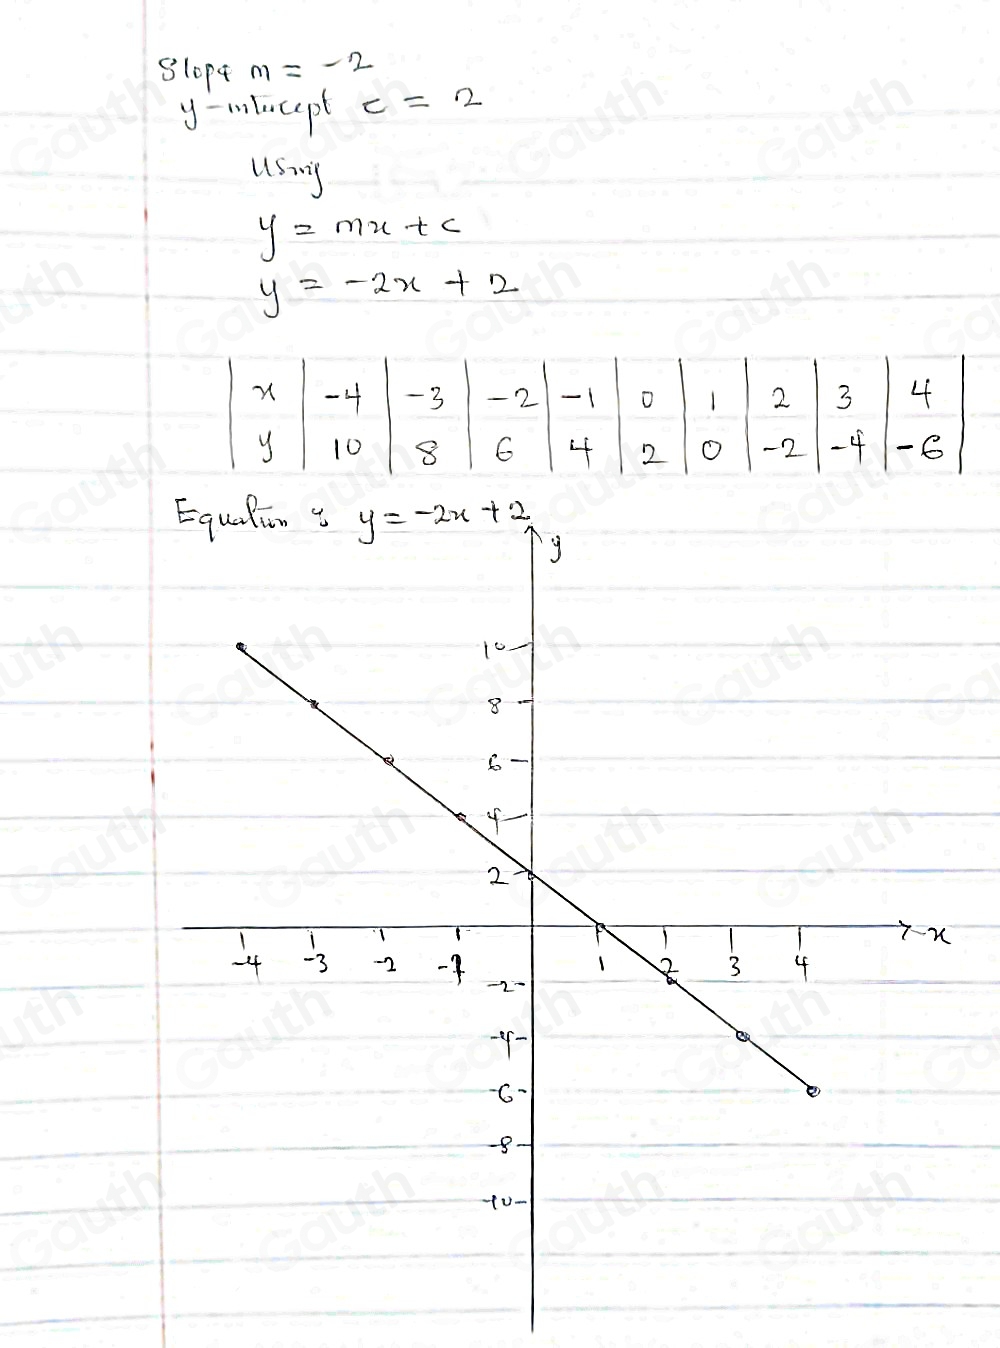 Slope m = -2
y-intercept c = 2
Using
y = mx + c
y = -2x + 2
x -4 -3 -2 -1 0 1 2 3 4
y 10 8 6 4 2 0 -2 -4 -6
Equation is y = -2x + 2
y
10
8
6
4
2
-4 -3 -2 -1 1 2 3 4 x
-2
-4
-6
-8
-10
Gauth